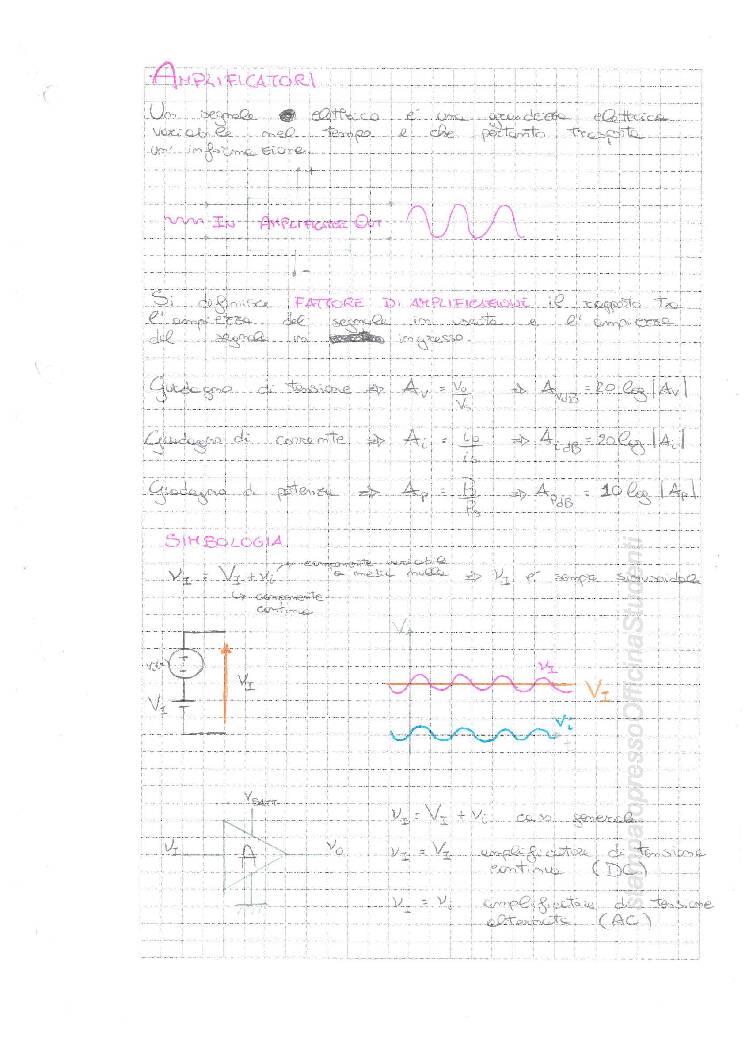 AMPLIFICATORI
Un segnale elettrico è una grandezza elettrica
variabile nel tempo e che pertanto trasporta
un'informazione.
+
IN AMPLIFICATORE OUT
-
Si definisce FATTORE DI AMPLIFICAZIONE il rapporto tra
l'ampiezza del segnale in uscita e l'ampiezza
del segnale in ingresso.
Guadagno di tensione ⇒ Av = vo/ ⇒ AvdB = 20 log |Av|
Guadagno di corrente ⇒ Ai = io/ ⇒ AidB = 20 log |Ai|
Guadagno di potenza ⇒ Ap = ⇒ ApdB = 10 log |Ap|
SIMBOLOGIA
vI = VI + vi componente variabile
a media nulla ⇒ vI è sempre
↳ componente
continua
VI vI
vI
VI
vi
VBATT
vI A vo
vI = VI + vi caso generale
vI = VI amplificatore di tensione
continua (DC)
vI = vi amplificatore di tensione
alternata (AC)
stampatopressoOfficinaStudenti